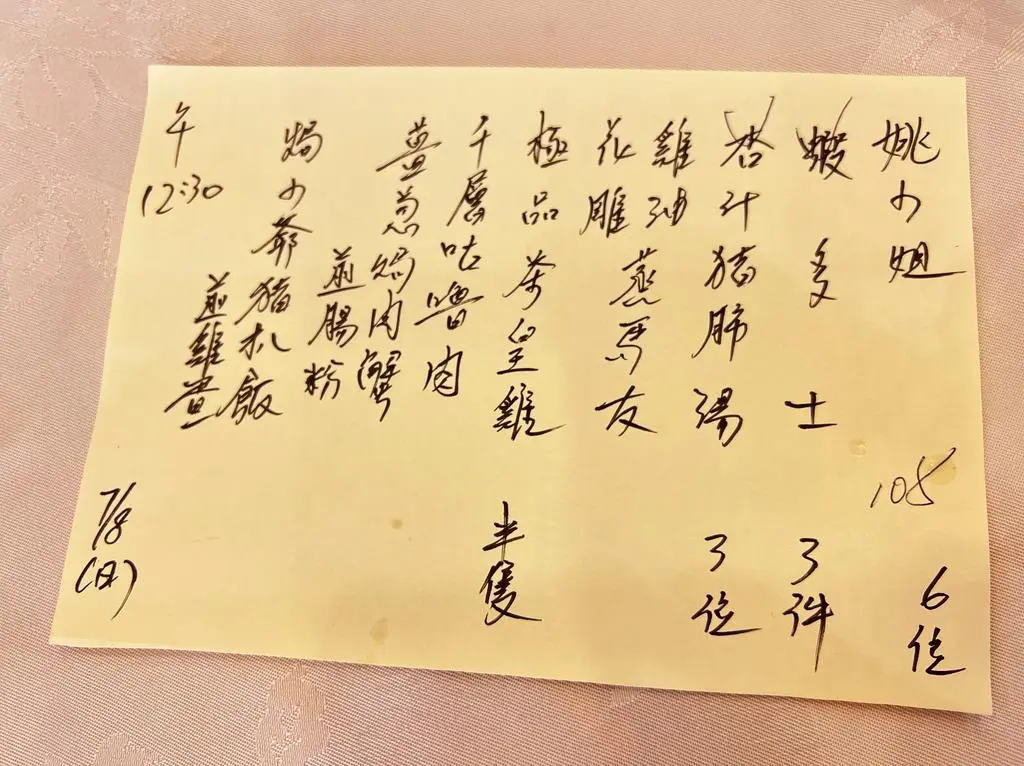 姚小姐 105 6位
蝦多士 3件
杏汁豬肺湯 3位
雞油
花雕蒸馬友
極品茶皇雞 半隻
千層咕嚕肉
薑葱焗肉蟹
煎腸粉
焗少爺豬扒飯
午12:30
7/8 (日)